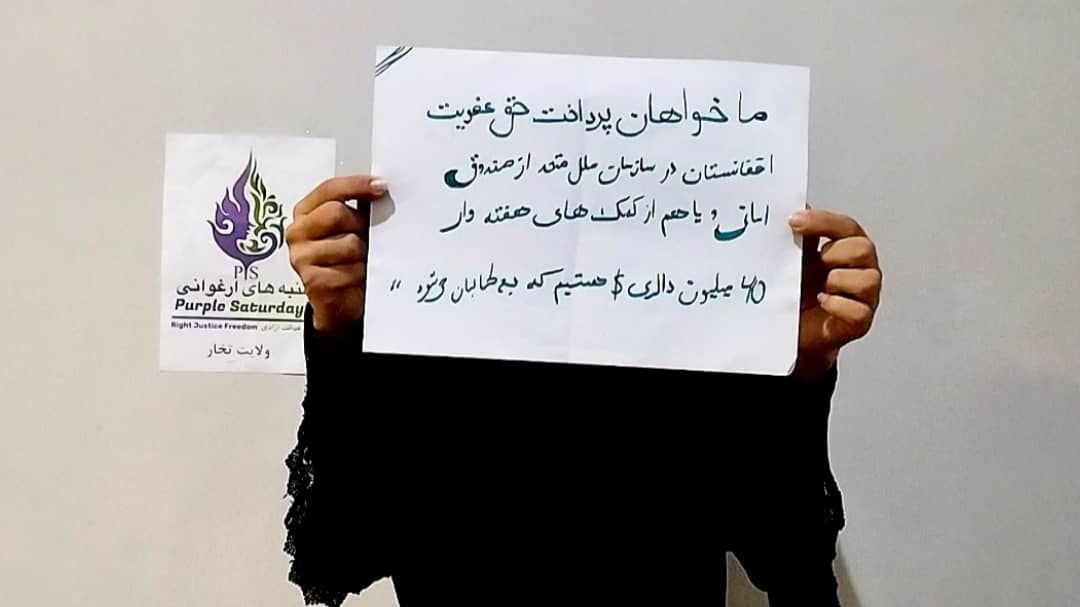 ما خواهان پرداخت حق عضویت
افغانستان در سازمان ملل متحد از صندوق
امانی و یا هم از کمک های هفته وار
۴۰ میلیون دالری $ هستیم که به طالبان میشود "
PJS
نبه های ارغوانی
Purple Saturday
Right Justice Freedom عدالت آزادی
ولایت تخار